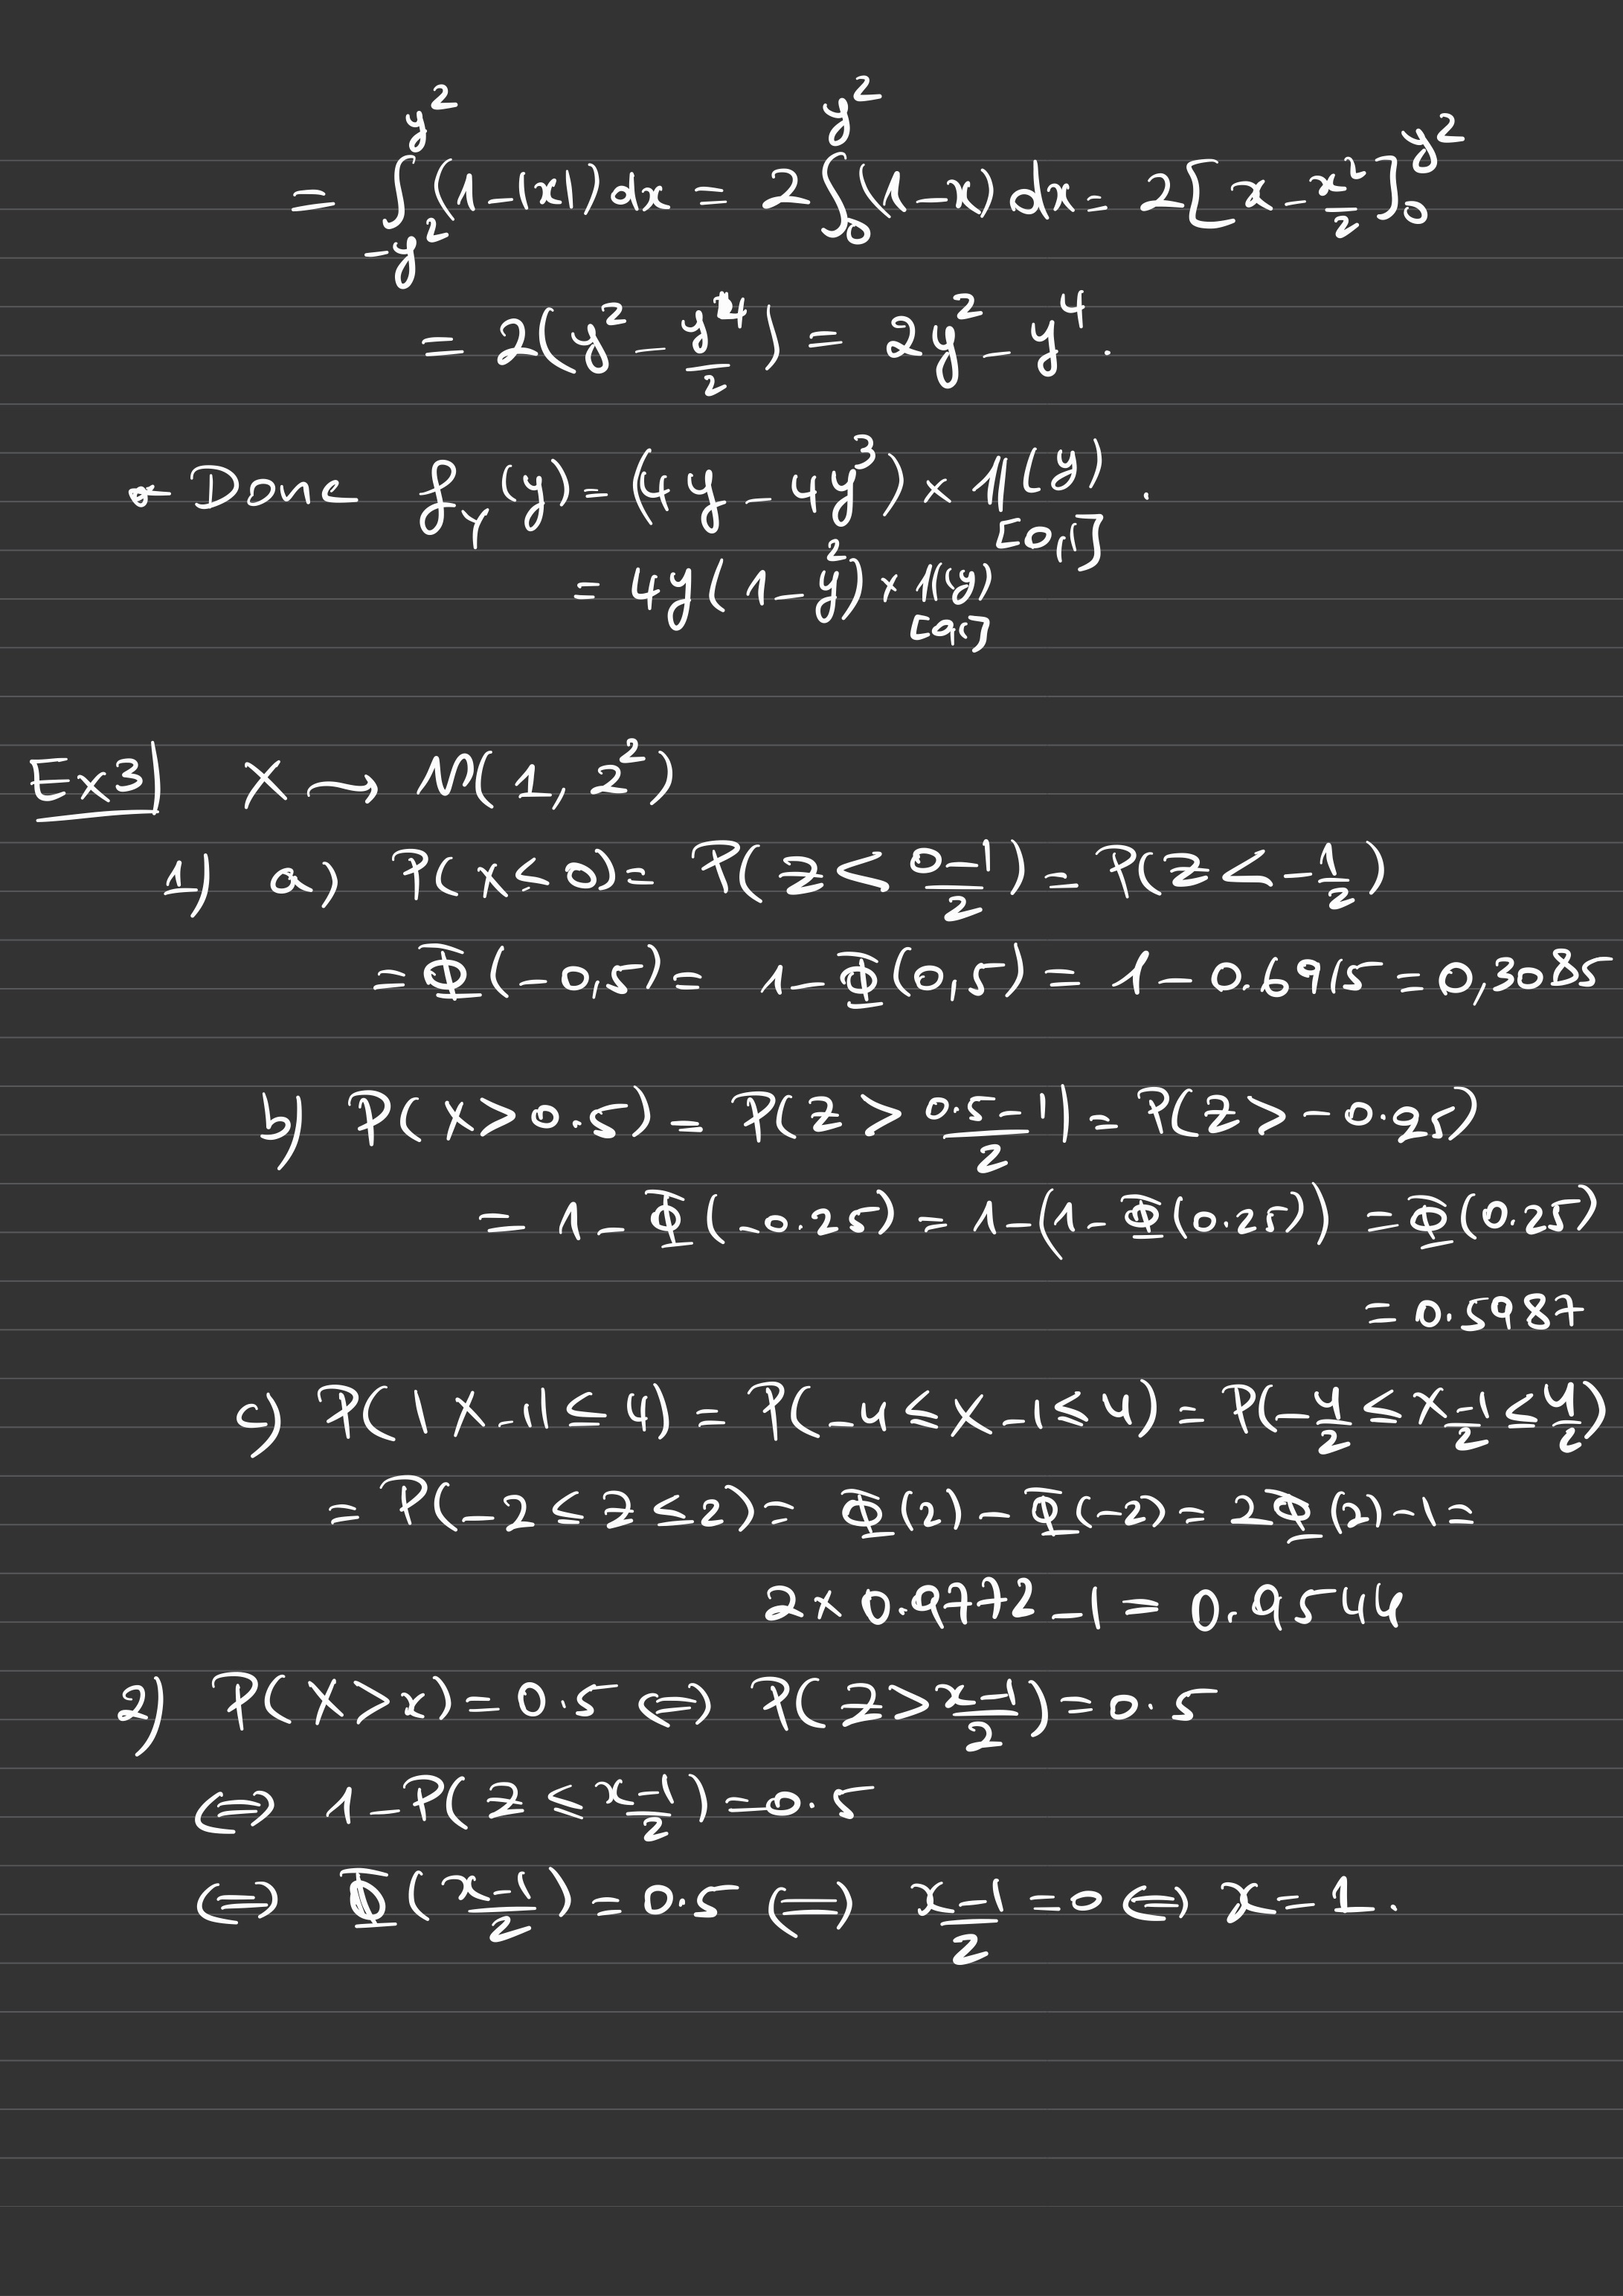 = ∫_{-y²}^{y²} (1-|x|) dx = 2∫_0^{y²} (1-x) dx = 2[x - x²/2]_0^{y²}
= 2(y² - y⁴/2) = 2y² - y⁴.
Donc f_Y(y) = (4y - 4y³) × 1_{[0,1]}(y).
= 4y(1-y²) × 1_{[0,1]}(y)
Ex3| X ⇝ N(1, 2²)
1) a) P(X≤0) = P(Z ≤ (0-1)/2) = P(Z ≤ -1/2)
= Φ(-0,5) = 1-Φ(0,5) = 1-0.6915 = 0,3085
b) P(X>0.5) = P(Z > (0.5-1)/2) = P(Z>-0.25)
= 1-Φ(-0.25) = 1-(1-Φ(0.25)) = Φ(0.25)
= 0.5987
c) P(|X-1|≤4) = P(-4≤X-1≤4) = P(-4/2 ≤ (X-1)/2 ≤ 4/2)
= P(-2≤Z≤2) = Φ(2)-Φ(-2) = 2Φ(2)-1 =
2×0.9772-1 = 0.9544
2) P(X>x) = 0.5 ⇔ P(Z > (x-1)/2) = 0.5
⇔ 1-P(Z ≤ (x-1)/2) = 0.5
⇔ Φ((x-1)/2) = 0.5 ⇔ (x-1)/2 = 0 ⇔ x=1.